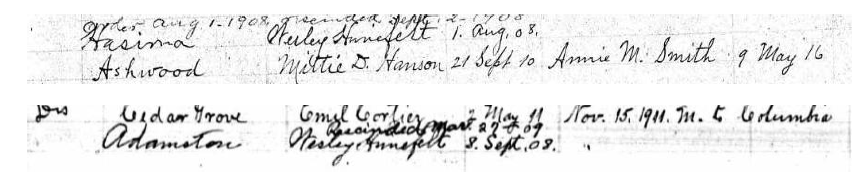 order Aug 1-1908, rescinded Sept. 2-1908
Hasima Wesley Hunefelt 1. Aug, 08.
Ashwood Mittie D. Hanson 21 Sept 10 Annie M. Smith 9 May 16
Dis Cedar Grove Emil Cortier 2 May 11 Nov. 15, 1911. M. to Columbia
Rescinded Mar. 22 09
Adamston Wesley Hunefelt 8. Sept, 08. "